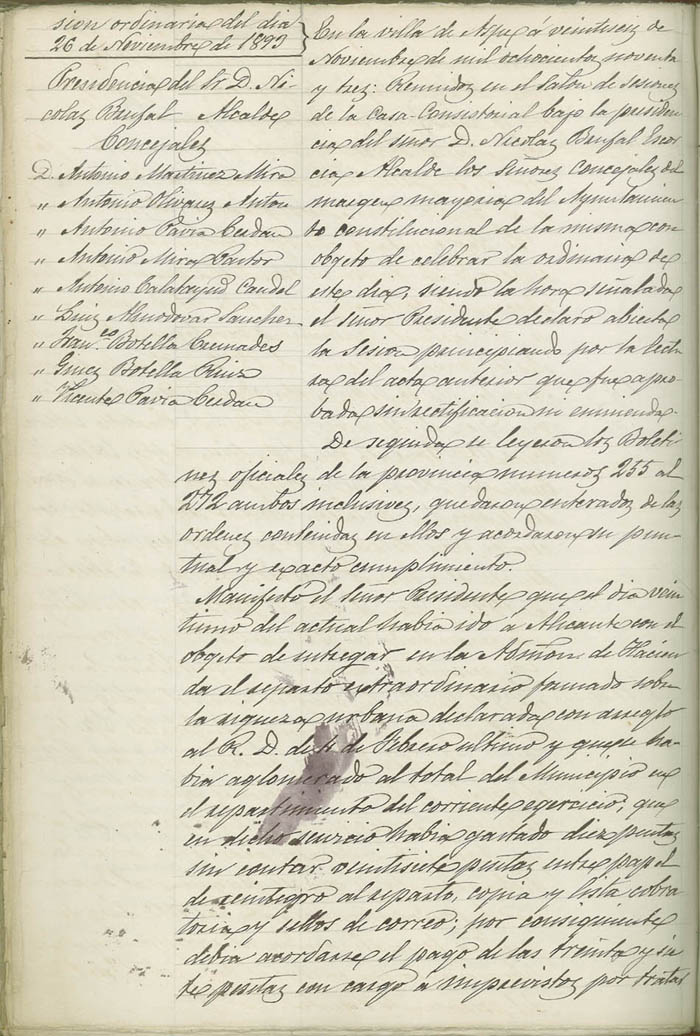 sion ordinaria del dia
26 de Noviembre de 1893
Presidencia del Sr. D. Ni-
colas Bensal Alcalde
Concejales
D. Antonio Martinez Mira
" Antonio Olivarez Anton
" Antonio Pavia Cerdan
" Antonio Mira Pastor
" Antonio Calatayud Candel
" Luiz Almodovar Sanchez
" Fran.co Botella Cremades
" Ginez Botella
" Vicente Pavia Cerdan
En la villa de Aspe á veintiseiz de
Noviembre de mil ochocientoz noventa
y trez: Reunidoz en el Salon de Sesionez
de la Casa-Consistorial bajo la presiden-
cia del señor D. Nicolaz Bensal Escor
cia Alcalde los Señorez Concejalez del
margen mayoria del Ayuntamien
to constitucional de la misma con
objeto de celebrar la ordinaria de
este dia, siendo la hora señalada
el señor Presidente declaró abierta
la Sesion principiando por la lectu
ra del acta anterior que fue apro-
bada sin rectificacion ni enmienda.
De seguida se leyeron loz Boleti
nez oficialez de la provincia numeroz 255 al
272 ambos inclusivez, quedaron enteradoz de laz
ordenez contenidaz en elloz y acordaron su pun-
tual y exacto cumplimiento.
Manifestó el señor Presidente que el dia vein
tiuno del actual habia ido á Alicante con el
objeto de entregar en la Admon. de Hacien
da el reparto extraordinario formado sobre
la riqueza urbana declarada con arreglo
al R. D. de 4 de Febrero ultimo y que se ha-
bia aglomerado al total del Municipio en
el repartimiento del corriente egercicio; que
en dicho servicio habia gastado diez pesetaz
sin contar veintisiete pesetaz entre papel
de reintegro al reparto, copia y lista cobra
toria y sellos de correo; por consiguiente
debia acordarse el pago de las treinta y sie
te pesetaz con cargo á imprevistoz por tratar